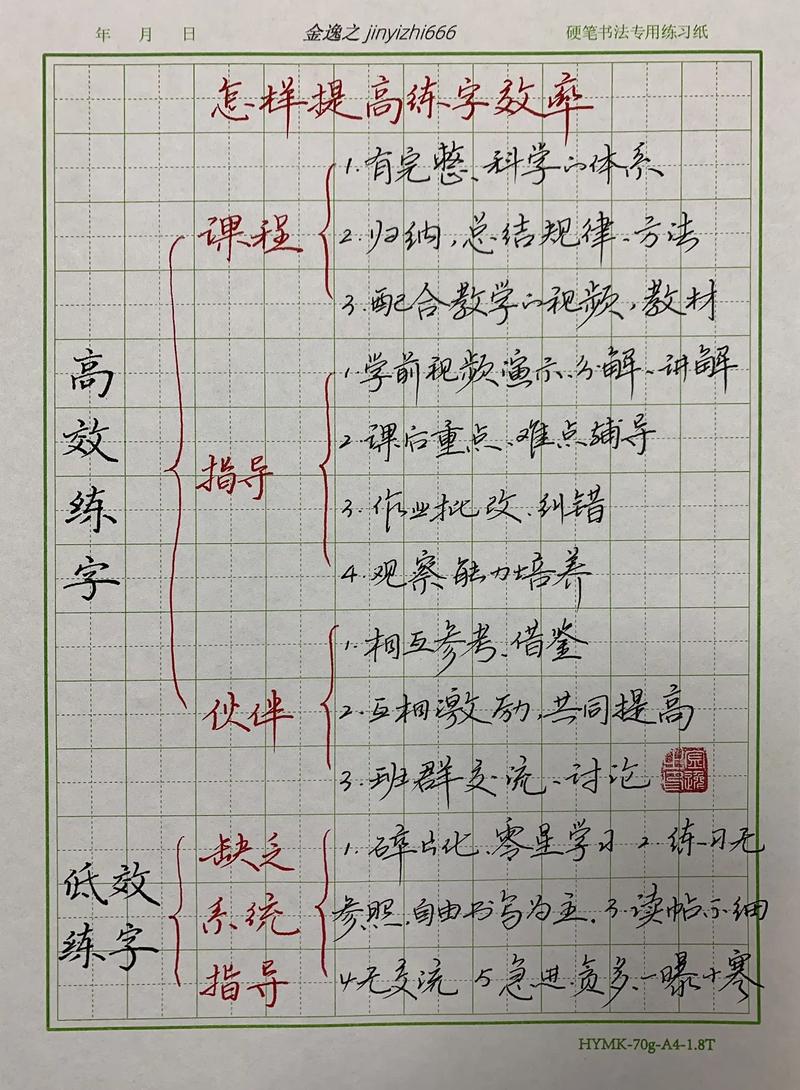 年 月 日
金逸之 jinyizhi666
硬笔书法专用练习纸
怎样提高练字效率
高效练字
课程
1.有完整、科学的体系
2.归纳,总结规律、方法
3.配合教学的视频,教材
指导
1.学前视频演示、分解、讲解
2.课后重点、难点辅导
3.作业批改、纠错
4.观察能力培养
伙伴
1.相互参考、借鉴
2.互相激励,共同提高
3.班群交流、讨论
低效
练字
缺乏
系统
指导
1.碎片化、零星学习 2.练习无
参照.自由书写为主.3.读帖不细
4.无交流 5急进.贪多.一曝十寒
HYMK-70g-A4-1.8T